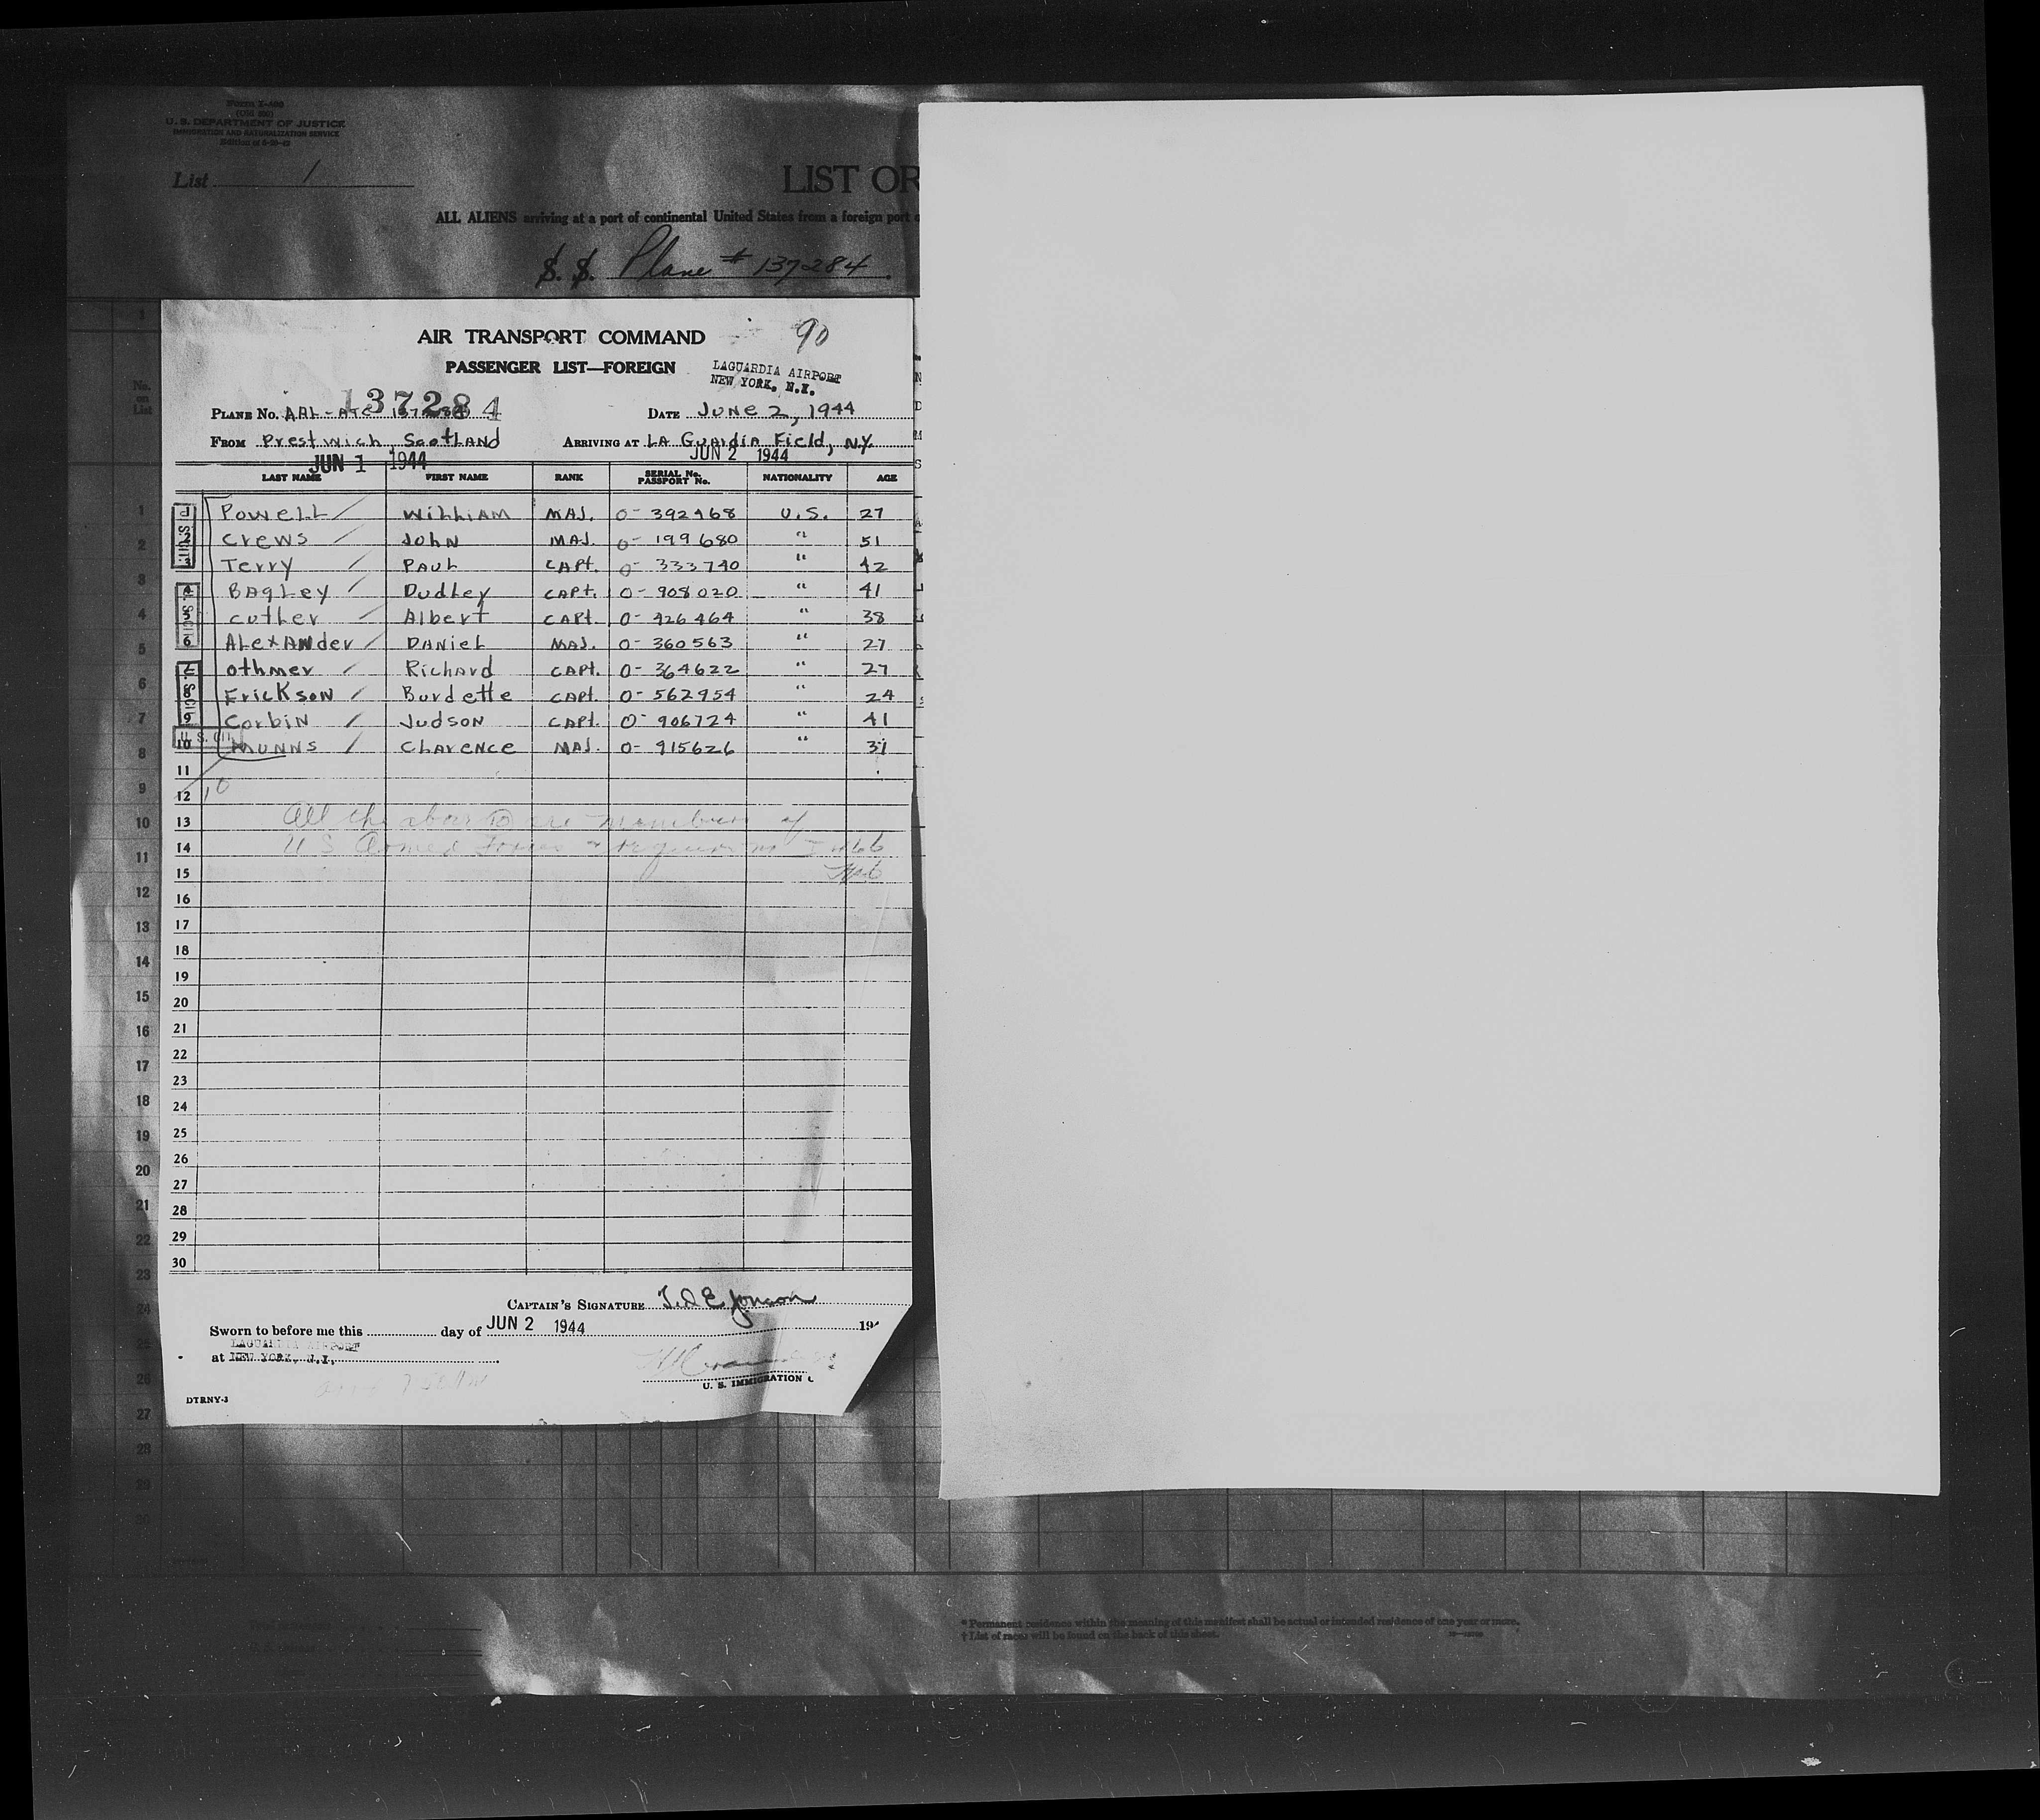 Form I-400
U. S. DEPARTMENT OF JUSTICE
IMMIGRATION AND NATURALIZATION SERVICE
List 1
LIST OR
ALL ALIENS arriving at a port of continental United States from a foreign port
S. S. Plane # 137284
AIR TRANSPORT COMMAND
90
PASSENGER LIST—FOREIGN
LAGUARDIA AIRPORT
NEW YORK, N.Y.
137284
PLANE No. AAL-ATC DATE JUNE 2, 1944
FROM Prestwich Scotland ARRIVING AT LA Guardia Field, N.Y.
JUN 1 1944 JUN 2 1944
LAST NAME FIRST NAME RANK SERIAL No. PASSPORT No. NATIONALITY AGE
1 Powell William MAJ. O-392468 U.S. 27
2 Crews John MAJ. O-199680 " 51
3 Terry Paul CAPT. O-333740 " 42
4 Bagley Dudley CAPT. O-908020 " 41
5 Cutler Albert CAPT. O-426464 " 38
6 Alexander Daniel MAJ. O-360563 " 27
7 Othmer Richard CAPT. O-364622 " 27
8 Erickson Burdette CAPT. O-562954 " 24
9 Corbin Judson CAPT. O-906724 " 41
10 Munns Clarence MAJ. O-915626 " 31
11
12 10
13 All the above 10 are members of
14 U S Armed Forces
15
16
17
18
19
20
21
22
23
24
25
26
27
28
29
30
CAPTAIN'S SIGNATURE
Sworn to before me this day of JUN 2 1944 194
LAGUARDIA AIRPORT
at NEW YORK, N.Y.
U. S. IMMIGRATION
DTRNY-3
* Permanent residence within the meaning of this manifest shall be actual or intended residence of one year or more.
† List of races will be found on the back of this sheet.